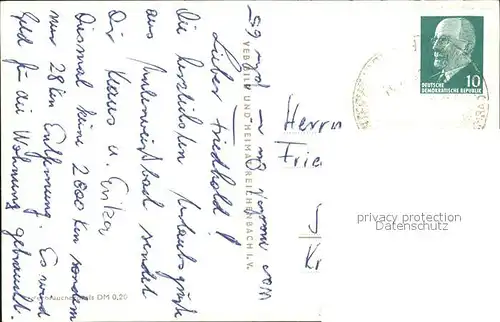 Lieber Friedhold!
Die herzlichsten Urlaubsgrüße
aus sendet
Dir Klaus u. Erika
Diesmal keine 2000 km sondern
nur 28 km Entfernung. Es wird
Geld für die Wohnung gebraucht.
VEB BILD UND HEIMAT REICHENBACH I. V.
DM 0.20
10
DEUTSCHE
DEMOKRATISCHE REPUBLIK
Herrn
Frie
Kr
privacy protection
Datenschutz